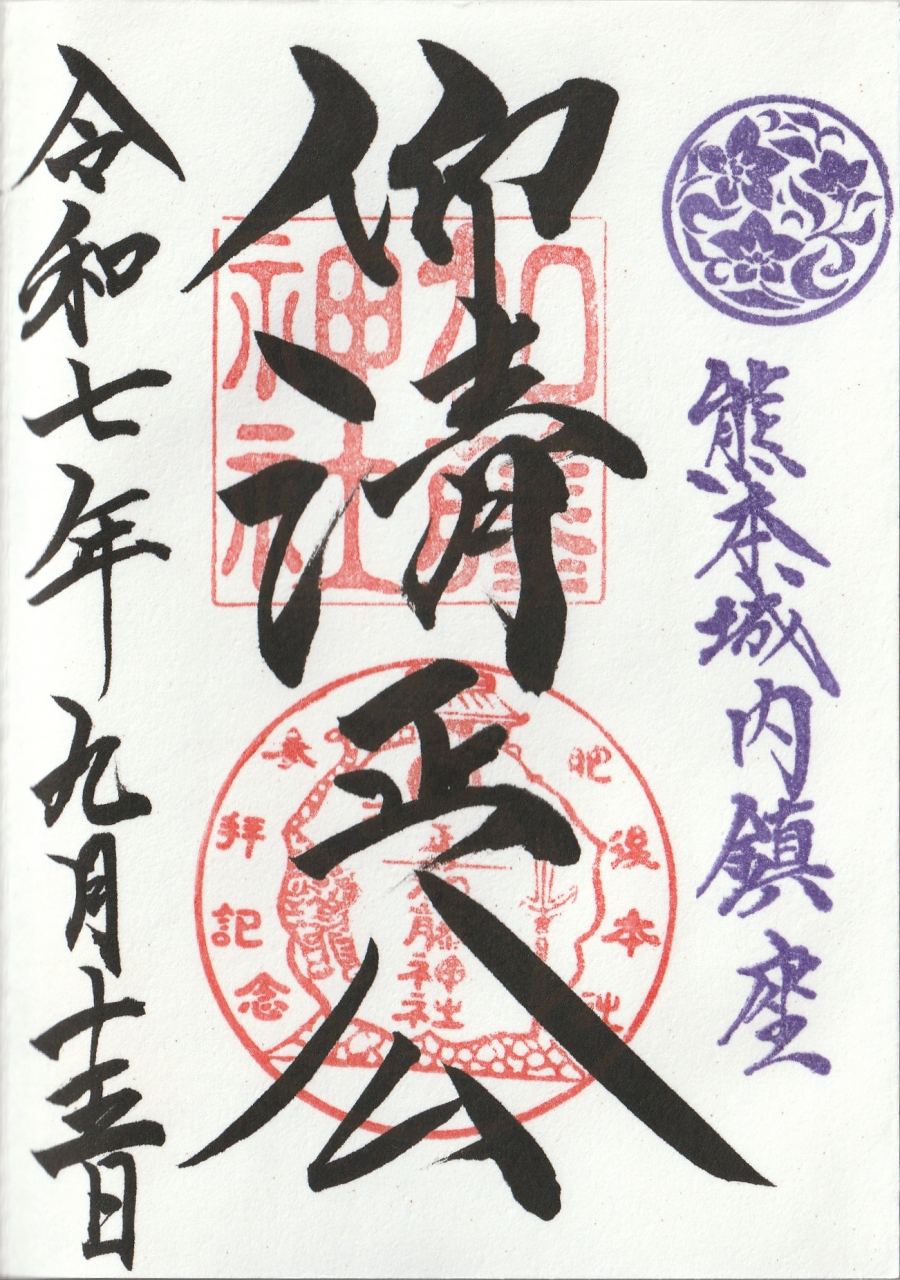 熊本城内鎮座
仰清正公
加藤
神社
肥後本社
参拝記念
加藤神社
令和七年九月十五日